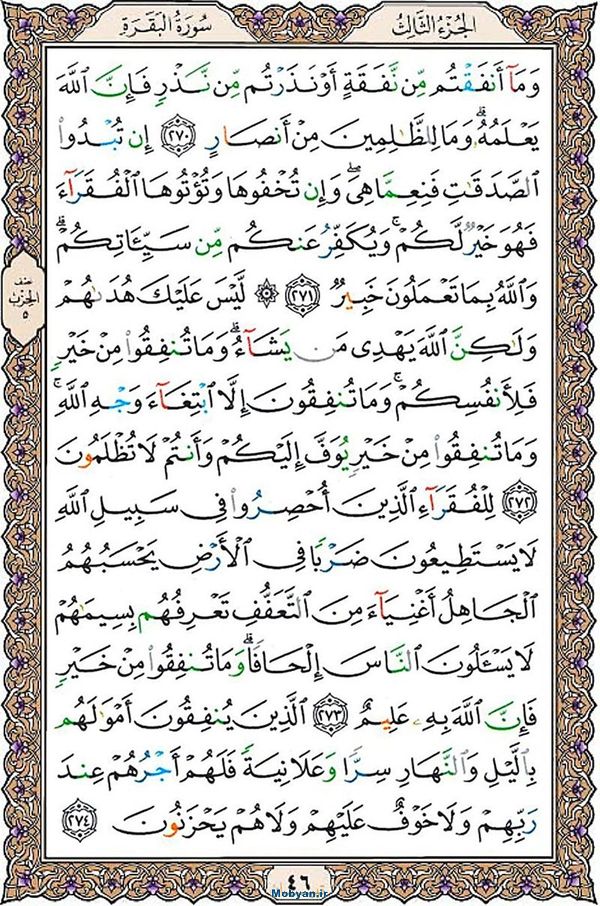 الجُزْءُ الثَّالِثُ
سُورَةُ البَقَرَةِ
وَمَآ أَنفَقۡتُم مِّن نَّفَقَةٍ أَوۡ نَذَرۡتُم مِّن نَّذۡرٖ فَإِنَّ ٱللَّهَ
يَعۡلَمُهُۥۗ وَمَا لِلظَّٰلِمِينَ مِنۡ أَنصَارٍ ٢٧٠ إِن تُبۡدُواْ
ٱلصَّدَقَٰتِ فَنِعِمَّا هِيَۖ وَإِن تُخۡفُوهَا وَتُؤۡتُوهَا ٱلۡفُقَرَآءَ
فَهُوَ خَيۡرٞ لَّكُمۡۚ وَيُكَفِّرُ عَنكُم مِّن سَيِّـَٔاتِكُمۡۗ
وَٱللَّهُ بِمَا تَعۡمَلُونَ خَبِيرٞ ٢٧١ ۞ لَّيۡسَ عَلَيۡكَ هُدَىٰهُمۡ
وَلَٰكِنَّ ٱللَّهَ يَهۡدِي مَن يَشَآءُۗ وَمَا تُنفِقُواْ مِنۡ خَيۡرٖ
فَلِأَنفُسِكُمۡۚ وَمَا تُنفِقُونَ إِلَّا ٱبۡتِغَآءَ وَجۡهِ ٱللَّهِۚ
وَمَا تُنفِقُواْ مِنۡ خَيۡرٖ يُوَفَّ إِلَيۡكُمۡ وَأَنتُمۡ لَا تُظۡلَمُونَ
٢٧٢ لِلۡفُقَرَآءِ ٱلَّذِينَ أُحۡصِرُواْ فِي سَبِيلِ ٱللَّهِ
لَا يَسۡتَطِيعُونَ ضَرۡبٗا فِي ٱلۡأَرۡضِ يَحۡسَبُهُمُ
ٱلۡجَاهِلُ أَغۡنِيَآءَ مِنَ ٱلتَّعَفُّفِ تَعۡرِفُهُم بِسِيمَٰهُمۡ
لَا يَسۡـَٔلُونَ ٱلنَّاسَ إِلۡحَافٗاۗ وَمَا تُنفِقُواْ مِنۡ خَيۡرٖ
فَإِنَّ ٱللَّهَ بِهِۦ عَلِيمٌ ٢٧٣ ٱلَّذِينَ يُنفِقُونَ أَمۡوَٰلَهُم
بِٱلَّيۡلِ وَٱلنَّهَارِ سِرّٗا وَعَلَانِيَةٗ فَلَهُمۡ أَجۡرُهُمۡ عِندَ
رَبِّهِمۡ وَلَا خَوۡفٌ عَلَيۡهِمۡ وَلَا هُمۡ يَحۡزَنُونَ ٢٧٤
نصف
الحزب
٥
٤٦
Mobyan.ir